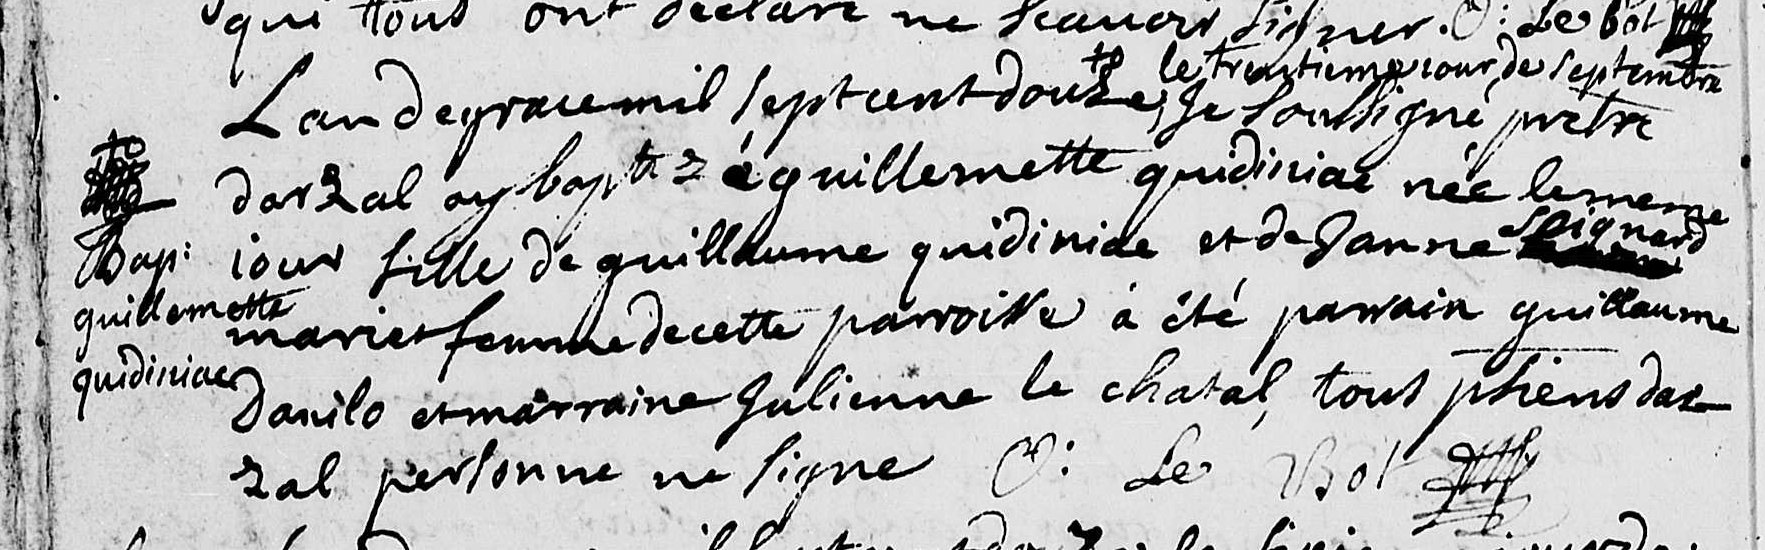 qui tous ont declaré ne scauoir signer. O: Le Bot
le trentieme iour de septembre
Lan de grace mil sept cent douze, Je soussigné prètre
darzal ay baptizé guillemette quidiniac née le meme
iour fille de guillaume quidiniac et de Janne Loignard
marie et femme de cette parroisse á été parrain guillaume
Danilo et marraine Julienne le chatal, tous phiens dar
zal personne ne signe O: Le Bot
Bap:
guillemette
quidiniac